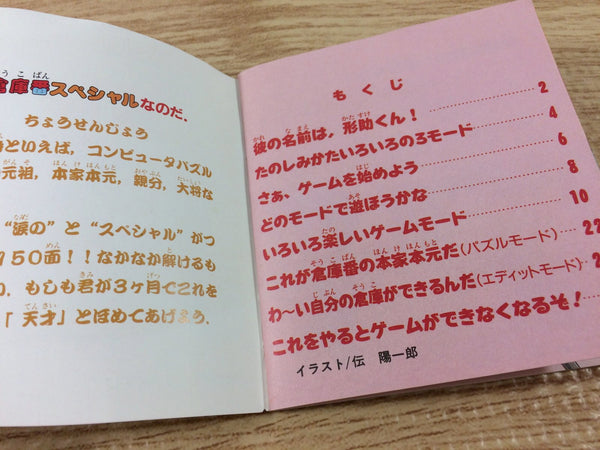 倉庫番スペシャルなのだ.
ちょうせんじょう
といえば, コンピュータパズル
元祖, 本家本元, 親分, 大将な
"涙の" と "スペシャル" がつ
150面!! なかなか解けるも
もしも君が3ヶ月でこれを
「天才」とほめてあげよう.
もくじ
彼の名前は, 形助くん! 2
たのしみかたいろいろの3モード 4
さぁ、ゲームを始めよう 6
どのモードで遊ぼうかな 8
いろいろ楽しいゲームモード 10
これが倉庫番の本家本元だ(パズルモード) 22
わ〜い自分の倉庫ができるんだ(エディットモード)
これをやるとゲームができなくなるぞ!
イラスト/伝 陽一郎